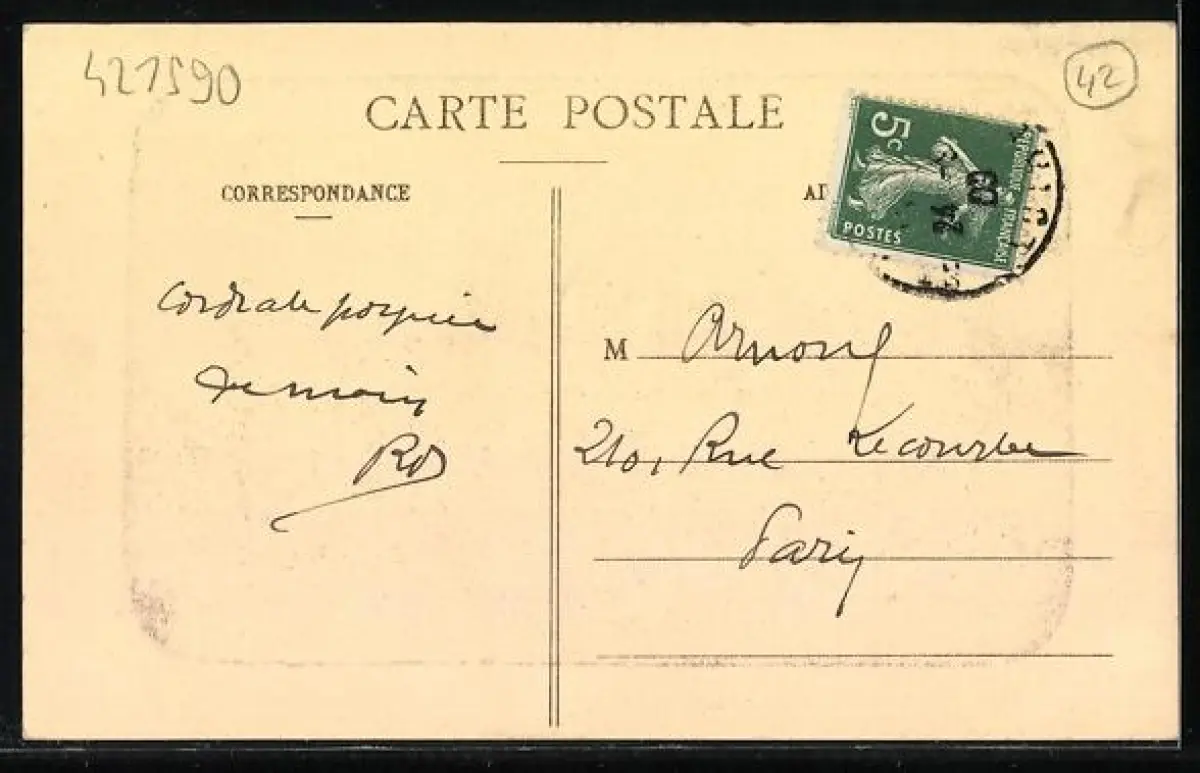 421590
42
CARTE POSTALE
CORRESPONDANCE
5c
POSTES
REPUBLIQUE FRANÇAISE
24
09
Cordiale poignée
de main
M Arnoul
210, Rue Lecourbe
Paris